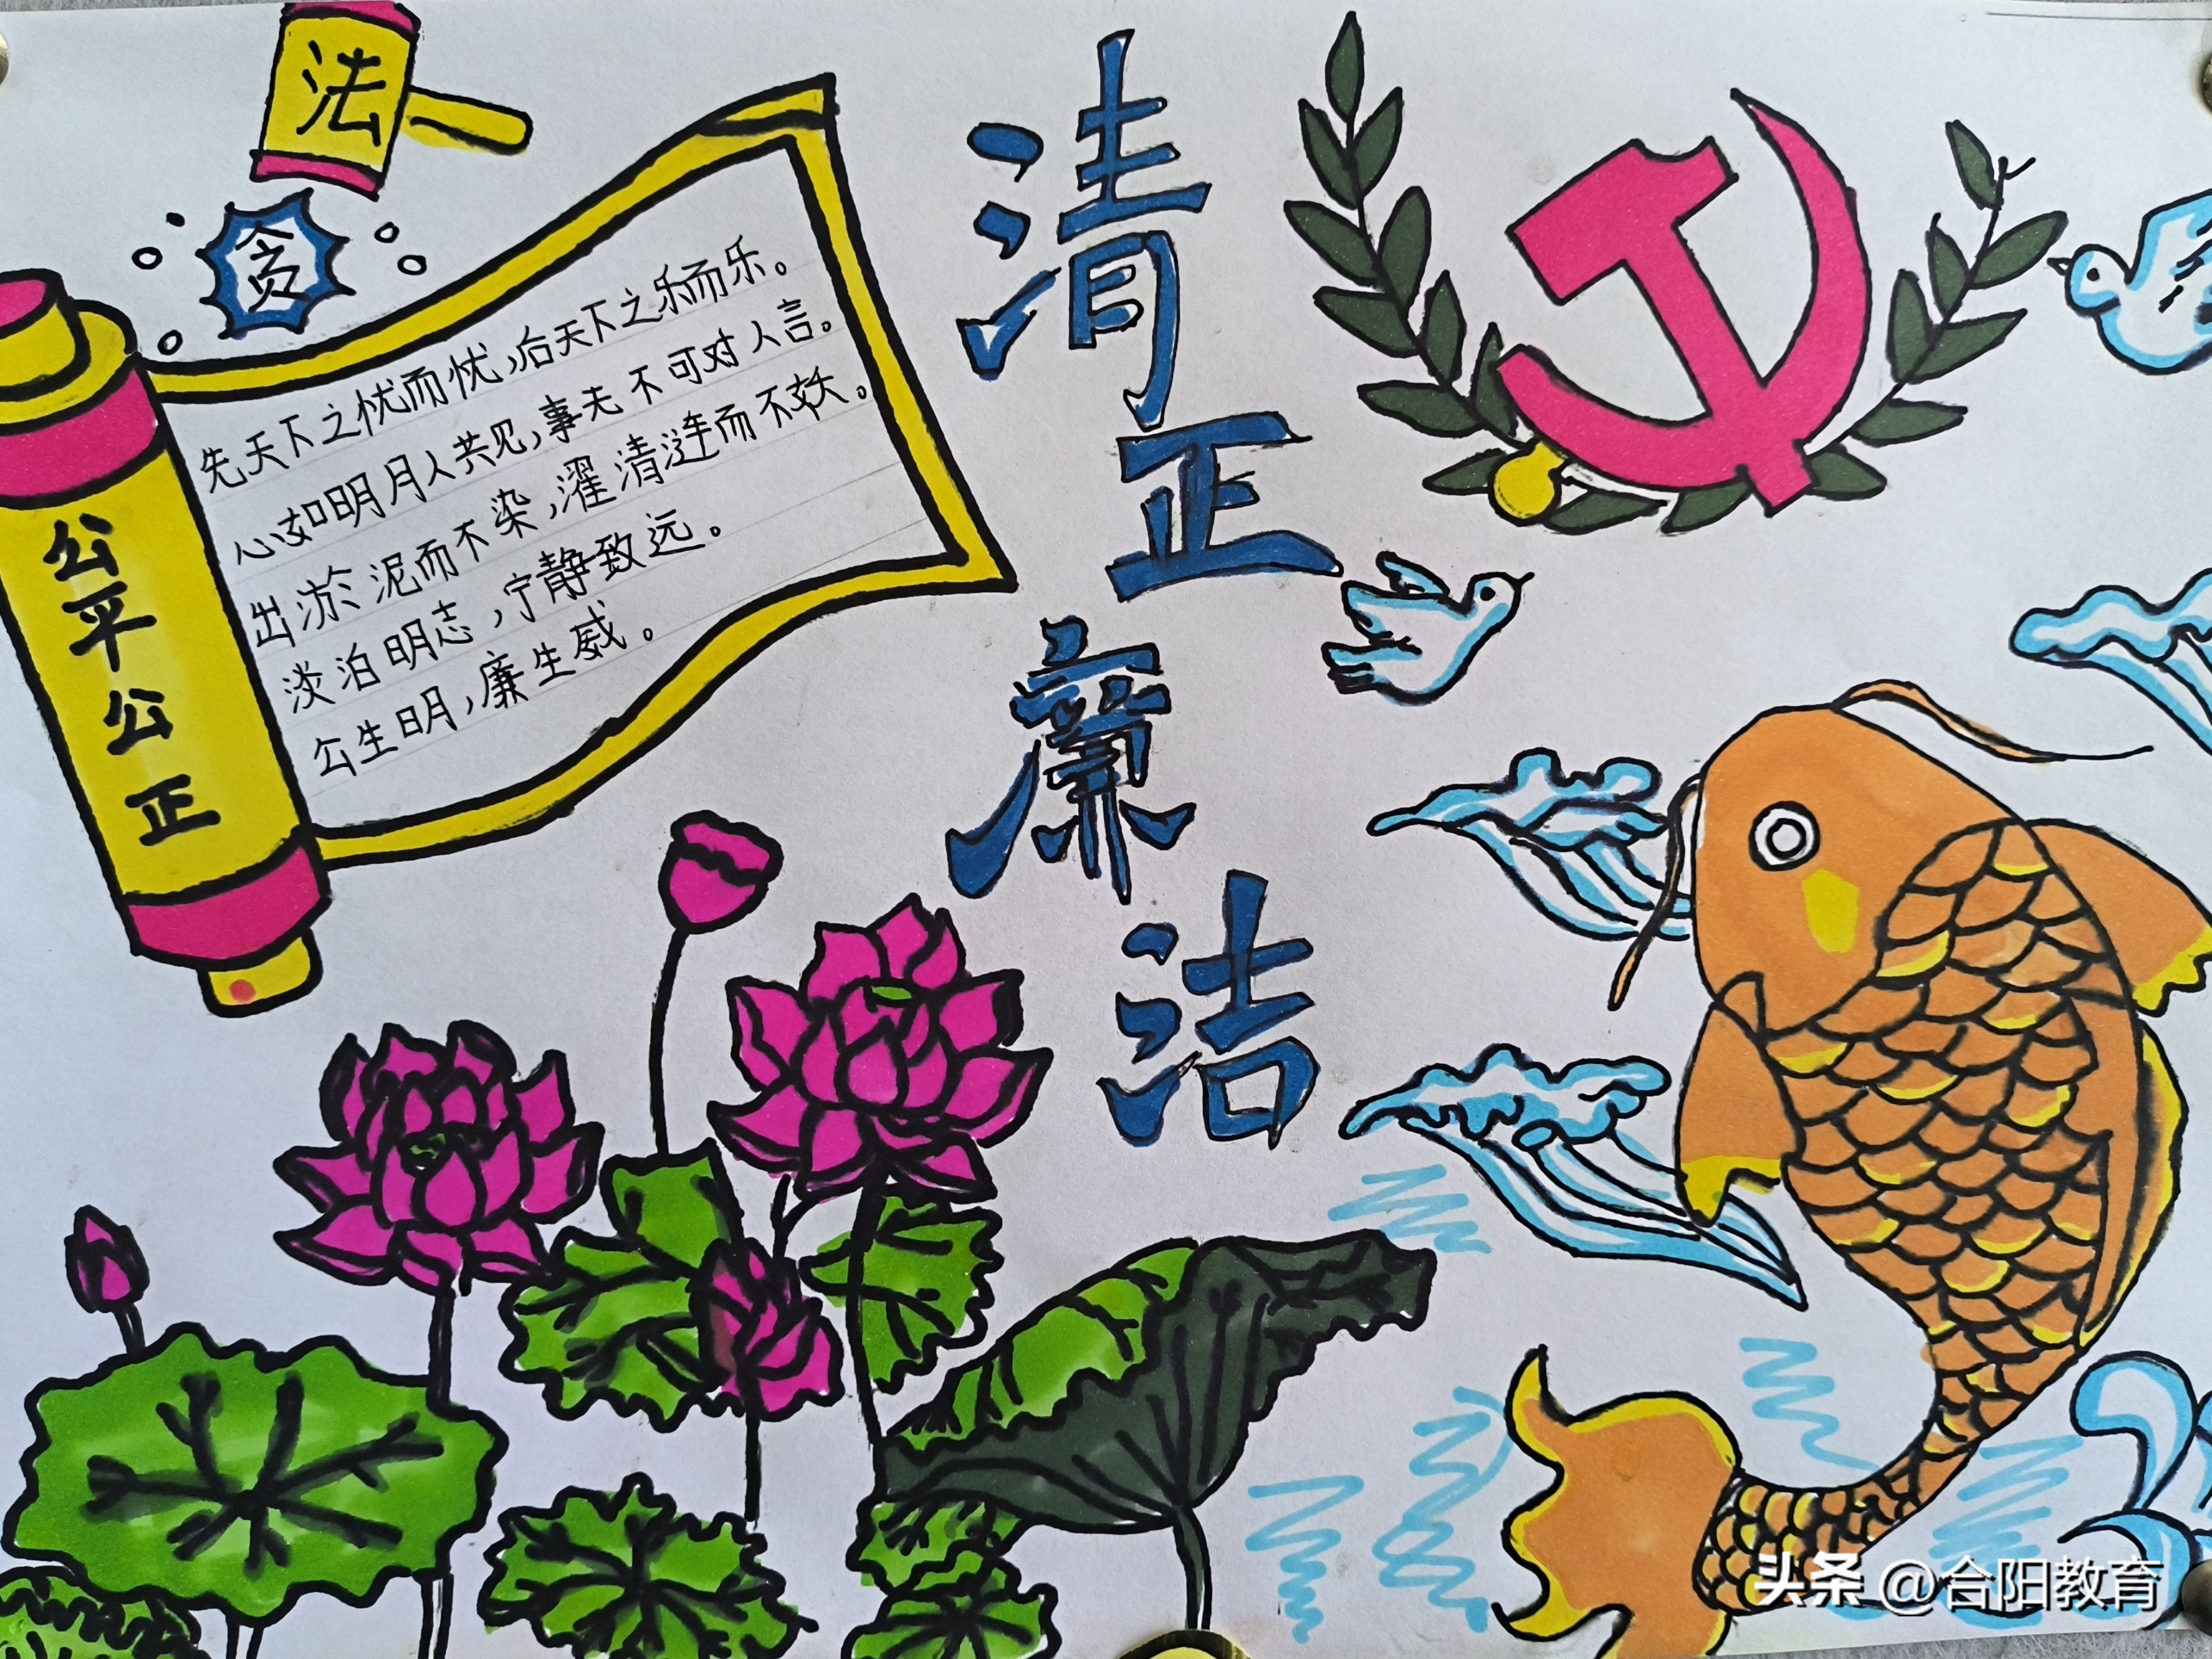 法
贪
先天下之忧而忧,后天下之乐而乐。
心如明月人共见,事无不可对人言。
出淤泥而不染,濯清涟而不妖。
淡泊明志,宁静致远。
公生明,廉生威。
公平公正
清正廉洁
头条 @合阳教育